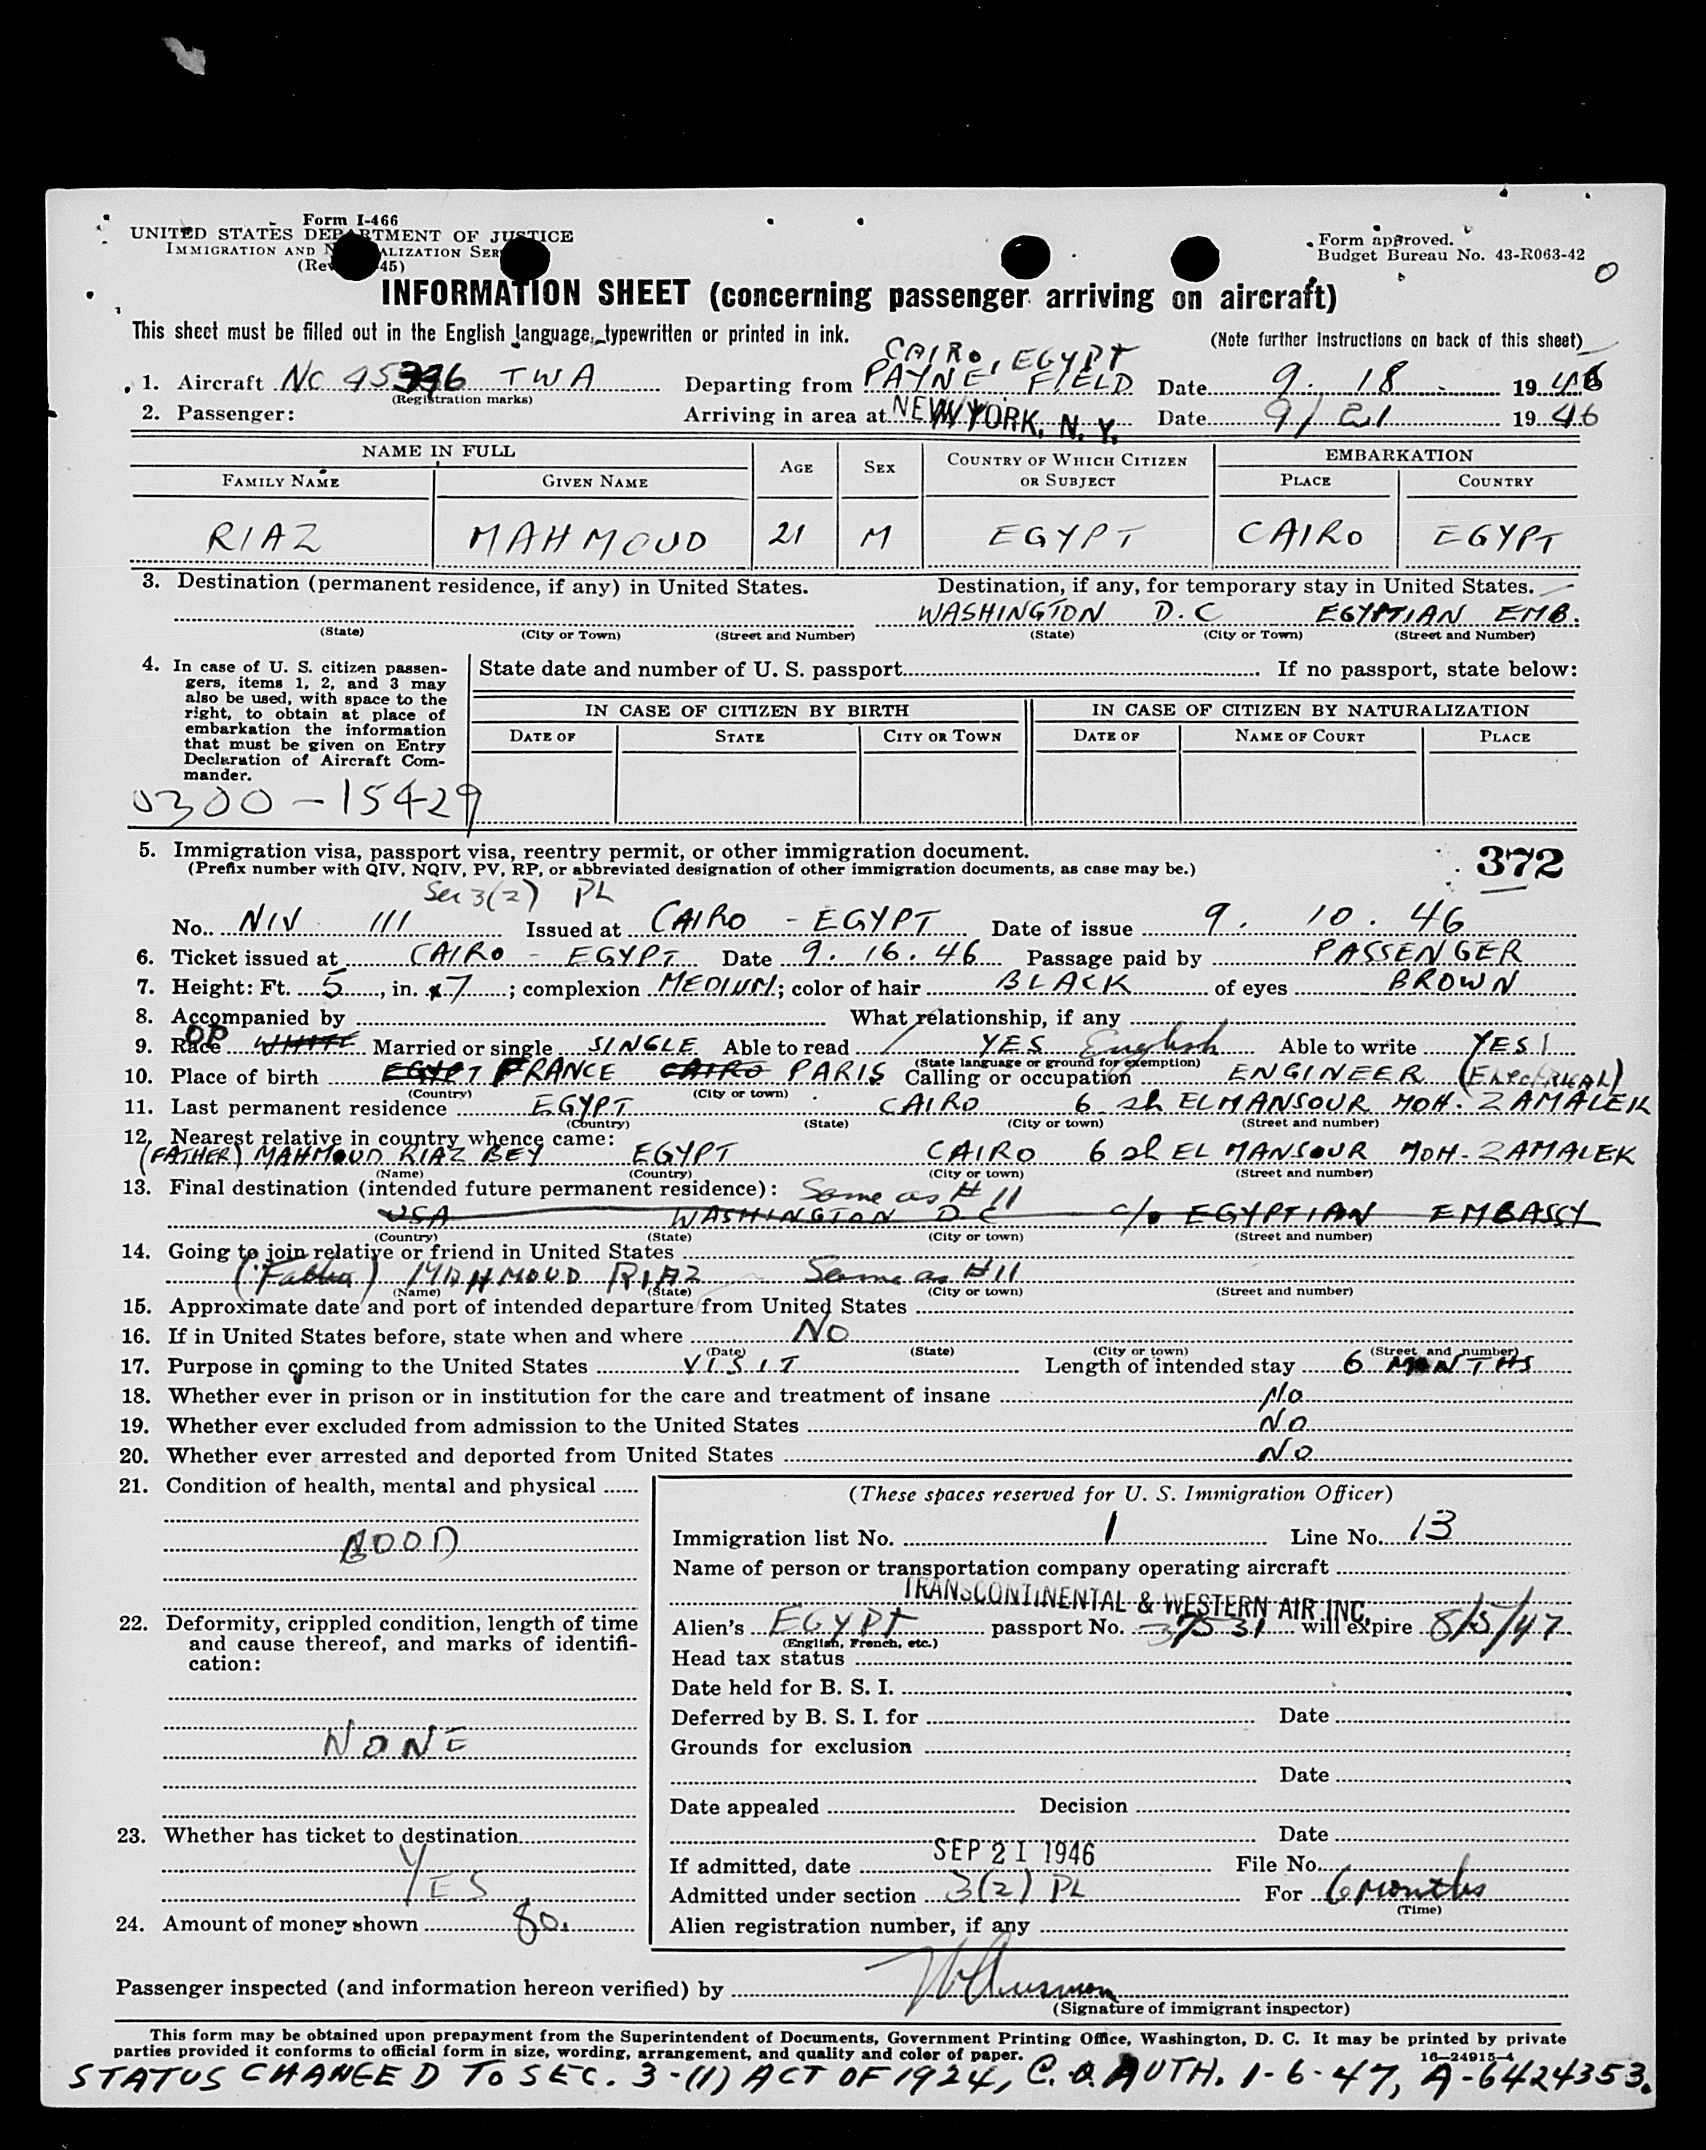 Form I-466
UNITED STATES DEPARTMENT OF JUSTICE
IMMIGRATION AND NATURALIZATION SERVICE
(Rev. 45)
Form approved.
Budget Bureau No. 43-R063-42
0
INFORMATION SHEET (concerning passenger arriving on aircraft)
This sheet must be filled out in the English language, typewritten or printed in ink. (Note further instructions on back of this sheet)
CAIRO, EGYPT
1. Aircraft NC TWA Departing from PAYNE FIELD Date 9. 18 1946
(Registration marks)
2. Passenger: Arriving in area at NEW YORK, N. Y. Date 9/21 1946
NAME IN FULL AGE SEX COUNTRY OF WHICH CITIZEN OR SUBJECT EMBARKATION
FAMILY NAME GIVEN NAME PLACE COUNTRY
RIAZ MAHMOUD 21 M EGYPT CAIRO EGYPT
3. Destination (permanent residence, if any) in United States. Destination, if any, for temporary stay in United States.
WASHINGTON D.C EGYPTIAN EMB.
(State) (City or Town) (Street and Number) (State) (City or Town) (Street and Number)
4. In case of U. S. citizen passen-
gers, items 1, 2, and 3 may
also be used, with space to the
right, to obtain at place of
embarkation the information
that must be given on Entry
Declaration of Aircraft Com-
mander.
State date and number of U. S. passport If no passport, state below:
IN CASE OF CITIZEN BY BIRTH IN CASE OF CITIZEN BY NATURALIZATION
DATE OF STATE CITY OR TOWN DATE OF NAME OF COURT PLACE
0300-15429
5. Immigration visa, passport visa, reentry permit, or other immigration document.
(Prefix number with QIV, NQIV, PV, RP, or abbreviated designation of other immigration documents, as case may be.)
372
Sec 3(2) PL
No. NIV 111 Issued at CAIRO - EGYPT Date of issue 9. 10. 46
6. Ticket issued at CAIRO - EGYPT Date 9. 16. 46 Passage paid by PASSENGER
7. Height: Ft. 5, in. 7; complexion MEDIUM; color of hair BLACK of eyes BROWN
8. Accompanied by What relationship, if any
OP
9. Race WHITE Married or single SINGLE Able to read YES English Able to write YES
(State language or ground for exemption)
10. Place of birth EGYPT FRANCE CAIRO PARIS Calling or occupation ENGINEER (ELECTRICAL)
(Country) (City or town)
11. Last permanent residence EGYPT CAIRO 6 sh EL MANSOUR MOH. ZAMALEK
(Country) (State) (City or town) (Street and number)
12. Nearest relative in country whence came:
(FATHER) MAHMOUD RIAZ BEY EGYPT CAIRO 6 sh EL MANSOUR MOH-ZAMALEK
(Name) (Country) (City or town) (Street and number)
13. Final destination (intended future permanent residence): Same as #11
USA WASHINGTON D C c/o EGYPTIAN EMBASSY
(Country) (State) (City or town) (Street and number)
14. Going to join relative or friend in United States
(Father) MAHMOUD RIAZ Same as #11
(Name) (State) (City or town) (Street and number)
15. Approximate date and port of intended departure from United States
16. If in United States before, state when and where NO
(Date) (State) (City or town) (Street and number)
17. Purpose in coming to the United States VISIT Length of intended stay 6 MONTHS
18. Whether ever in prison or in institution for the care and treatment of insane No
19. Whether ever excluded from admission to the United States NO
20. Whether ever arrested and deported from United States NO
21. Condition of health, mental and physical
GOOD
22. Deformity, crippled condition, length of time
and cause thereof, and marks of identifi-
cation:
NONE
23. Whether has ticket to destination
YES
24. Amount of money shown 80.
(These spaces reserved for U. S. Immigration Officer)
Immigration list No. 1 Line No. 13
Name of person or transportation company operating aircraft
TRANSCONTINENTAL & WESTERN AIR INC.
Alien's EGYPT passport No. 37531 will expire 8/5/47
(English, French, etc.)
Head tax status
Date held for B. S. I.
Deferred by B. S. I. for Date
Grounds for exclusion
Date
Date appealed Decision
Date
If admitted, date SEP 21 1946 File No.
Admitted under section 3(2) PL For 6 months
(Time)
Alien registration number, if any
Passenger inspected (and information hereon verified) by
(Signature of immigrant inspector)
This form may be obtained upon prepayment from the Superintendent of Documents, Government Printing Office, Washington, D. C. It may be printed by private
parties provided it conforms to official form in size, wording, arrangement, and quality and color of paper. 16-24915-4
STATUS CHANGED TO SEC. 3-(1) ACT OF 1924, C.O. AUTH. 1-6-47, A-6424353.